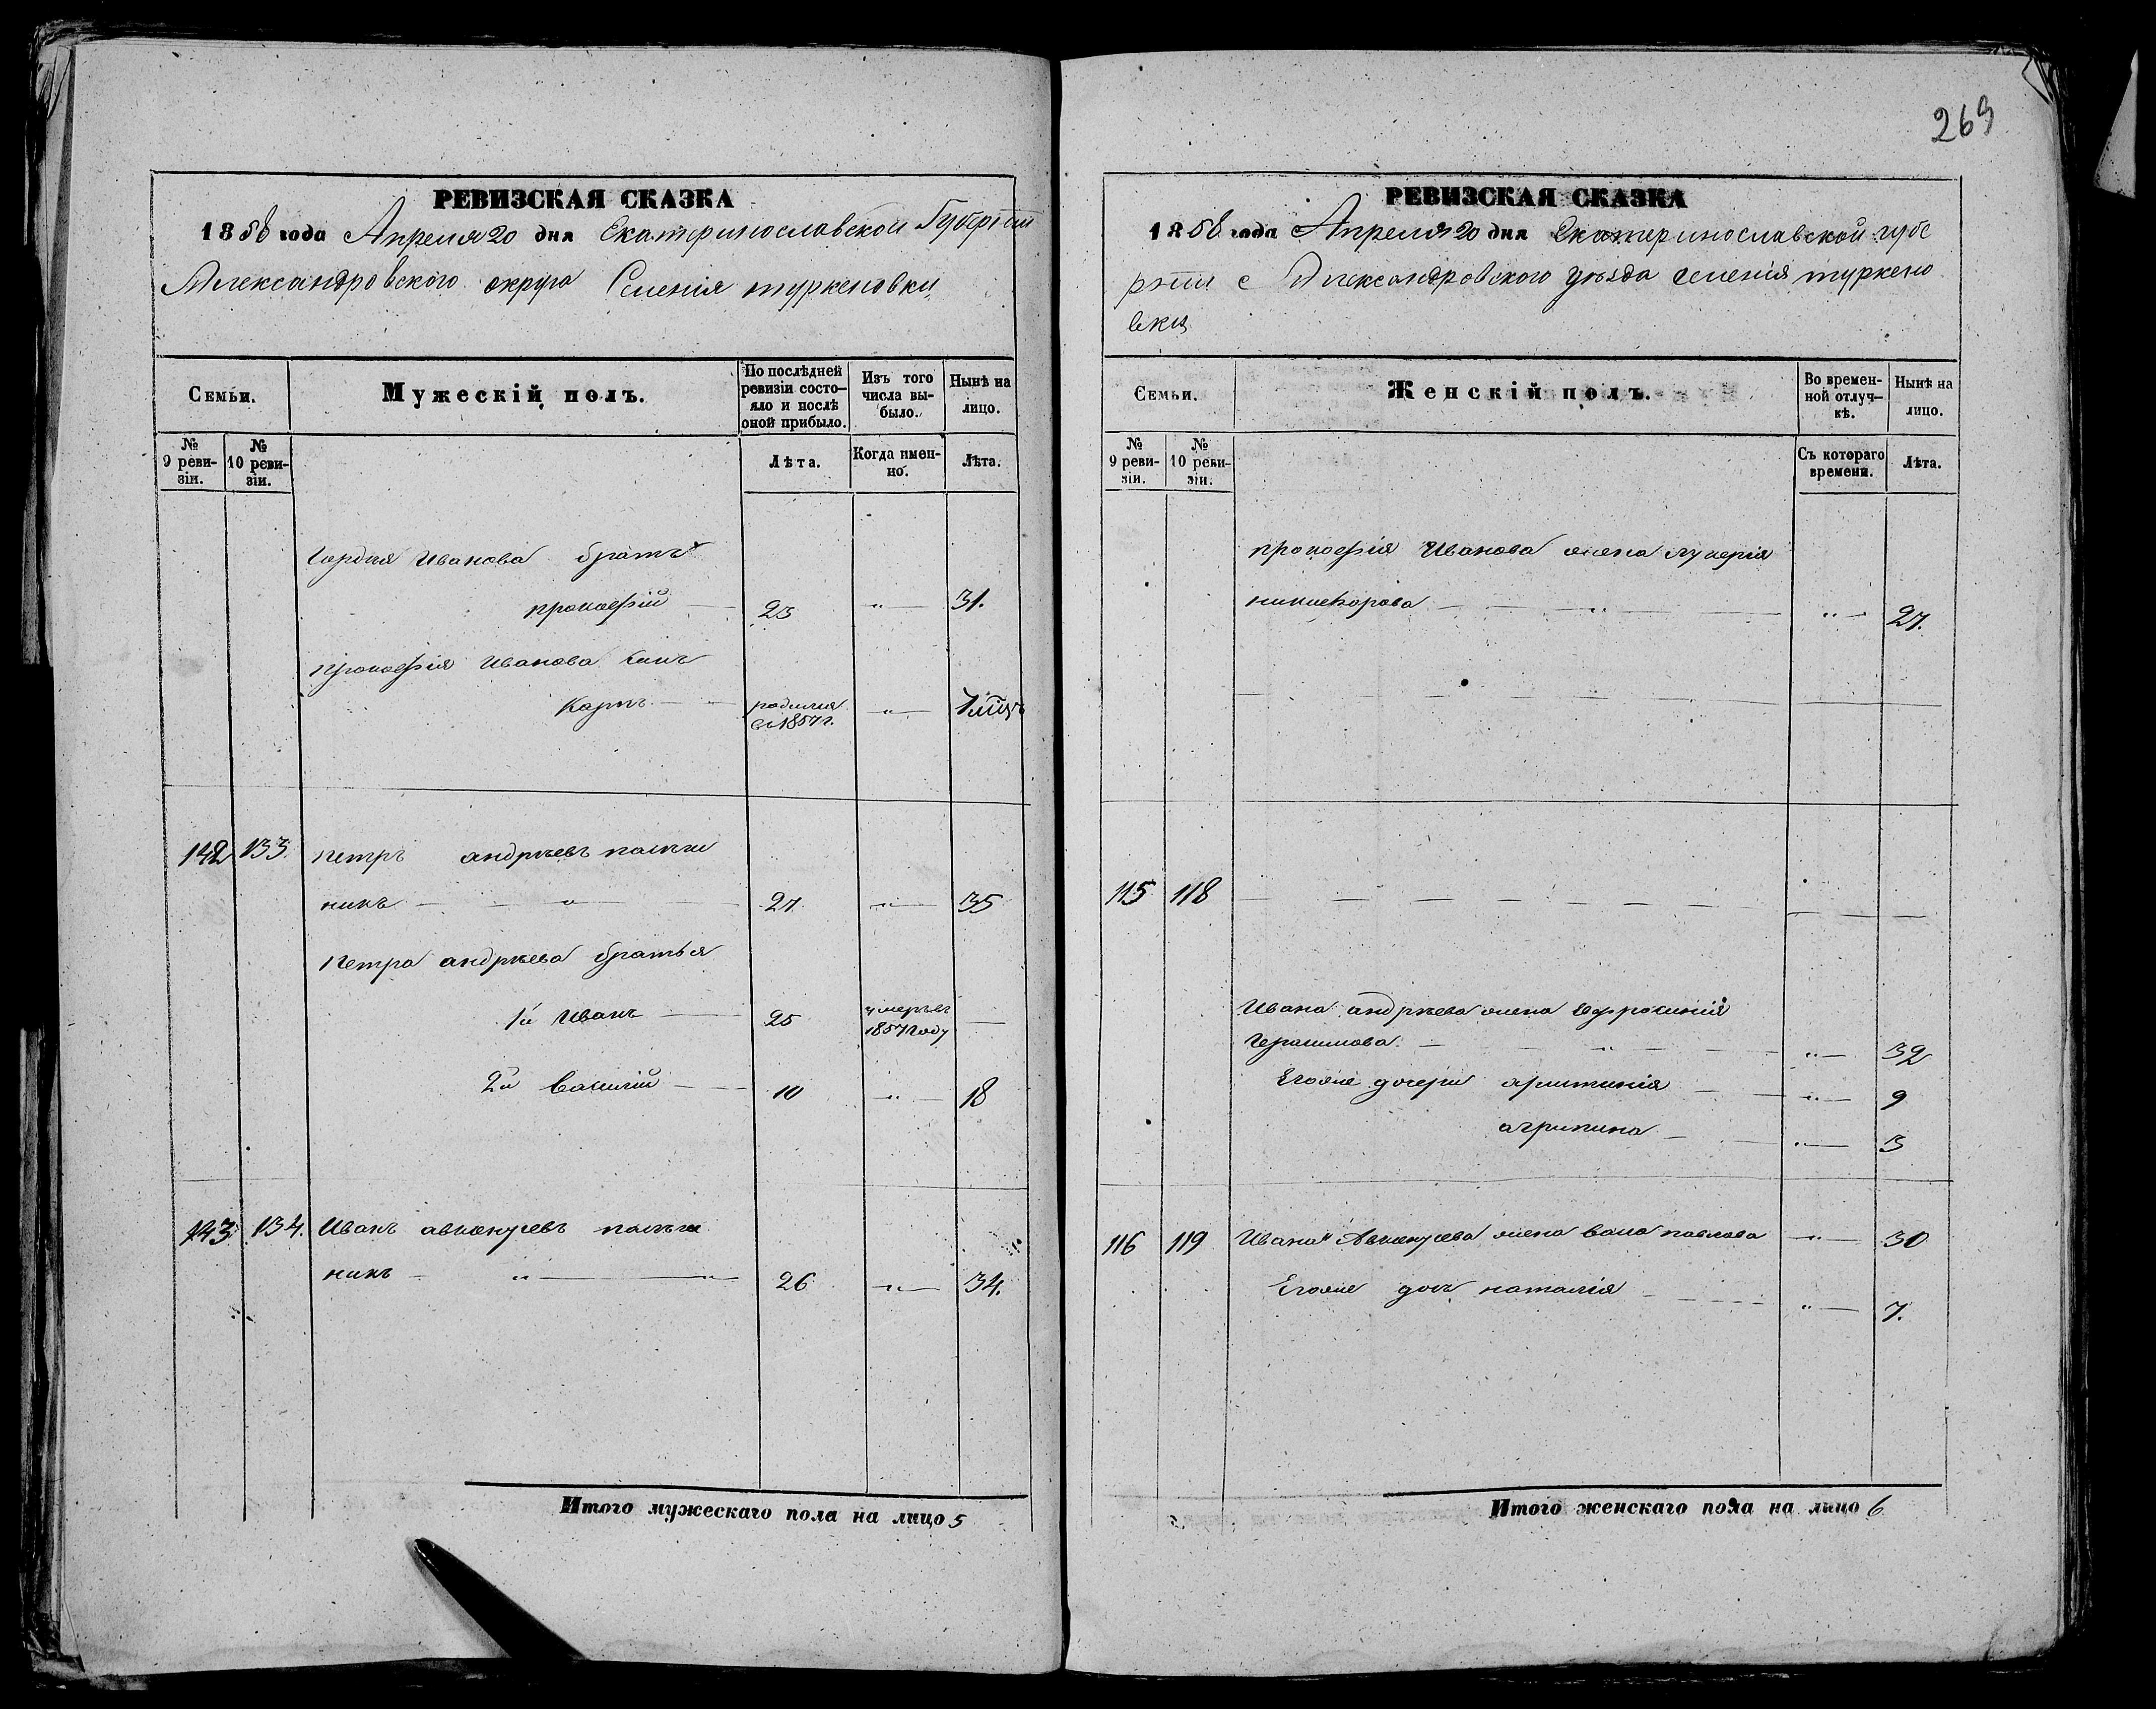 269
РЕВИЗСКАЯ СКАЗКА
1858 года Апреля 20 дня Екатеринославской Губерніи
Александровского округа Селенія туркеновки
Семьи.
Мужескій полъ.
По послѣдней ревизіи состояло и послѣ оной прибыло.
Изъ того числа выбыло.
Нынѣ на лицо.
№ 9 ревизіи.
№ 10 ревизіи.
Лѣта.
Когда именно.
Лѣта.
Иванова братъ
прокофій 23 " 31.
прокофія Иванова сынъ
карпъ родился въ 1857 г. "
142 133. петръ андрѣевъ
никъ " 27 " 35
петра андрѣева братья
1й Иванъ 25 умеръ въ 1857 году
2й василій 10 " 18
143 134. Иванъ
никъ " " 26 " 34.
Итого мужескаго пола на лицо 5
РЕВИЗСКАЯ СКАЗКА
1858 года Апреля 20 дня Екатеринославской губе
рніи Александровского уѣзда селенія туркено
вки
Семьи.
Женскій полъ.
Во временной отлучкѣ.
Нынѣ на лицо.
№ 9 ревизіи.
№ 10 ревизіи.
Съ котораго времени.
Лѣта.
прокофія Иванова жена лукерія
никифорова " " 27.
115 118
Ивана андрѣева жена Ефросинія
Герасимова " " 32
Егоже дочери " 9
агрипина " 3
116 119 жена павлова " 30
Егоже дочь наталія " 7.
Итого женскаго пола на лицо 6